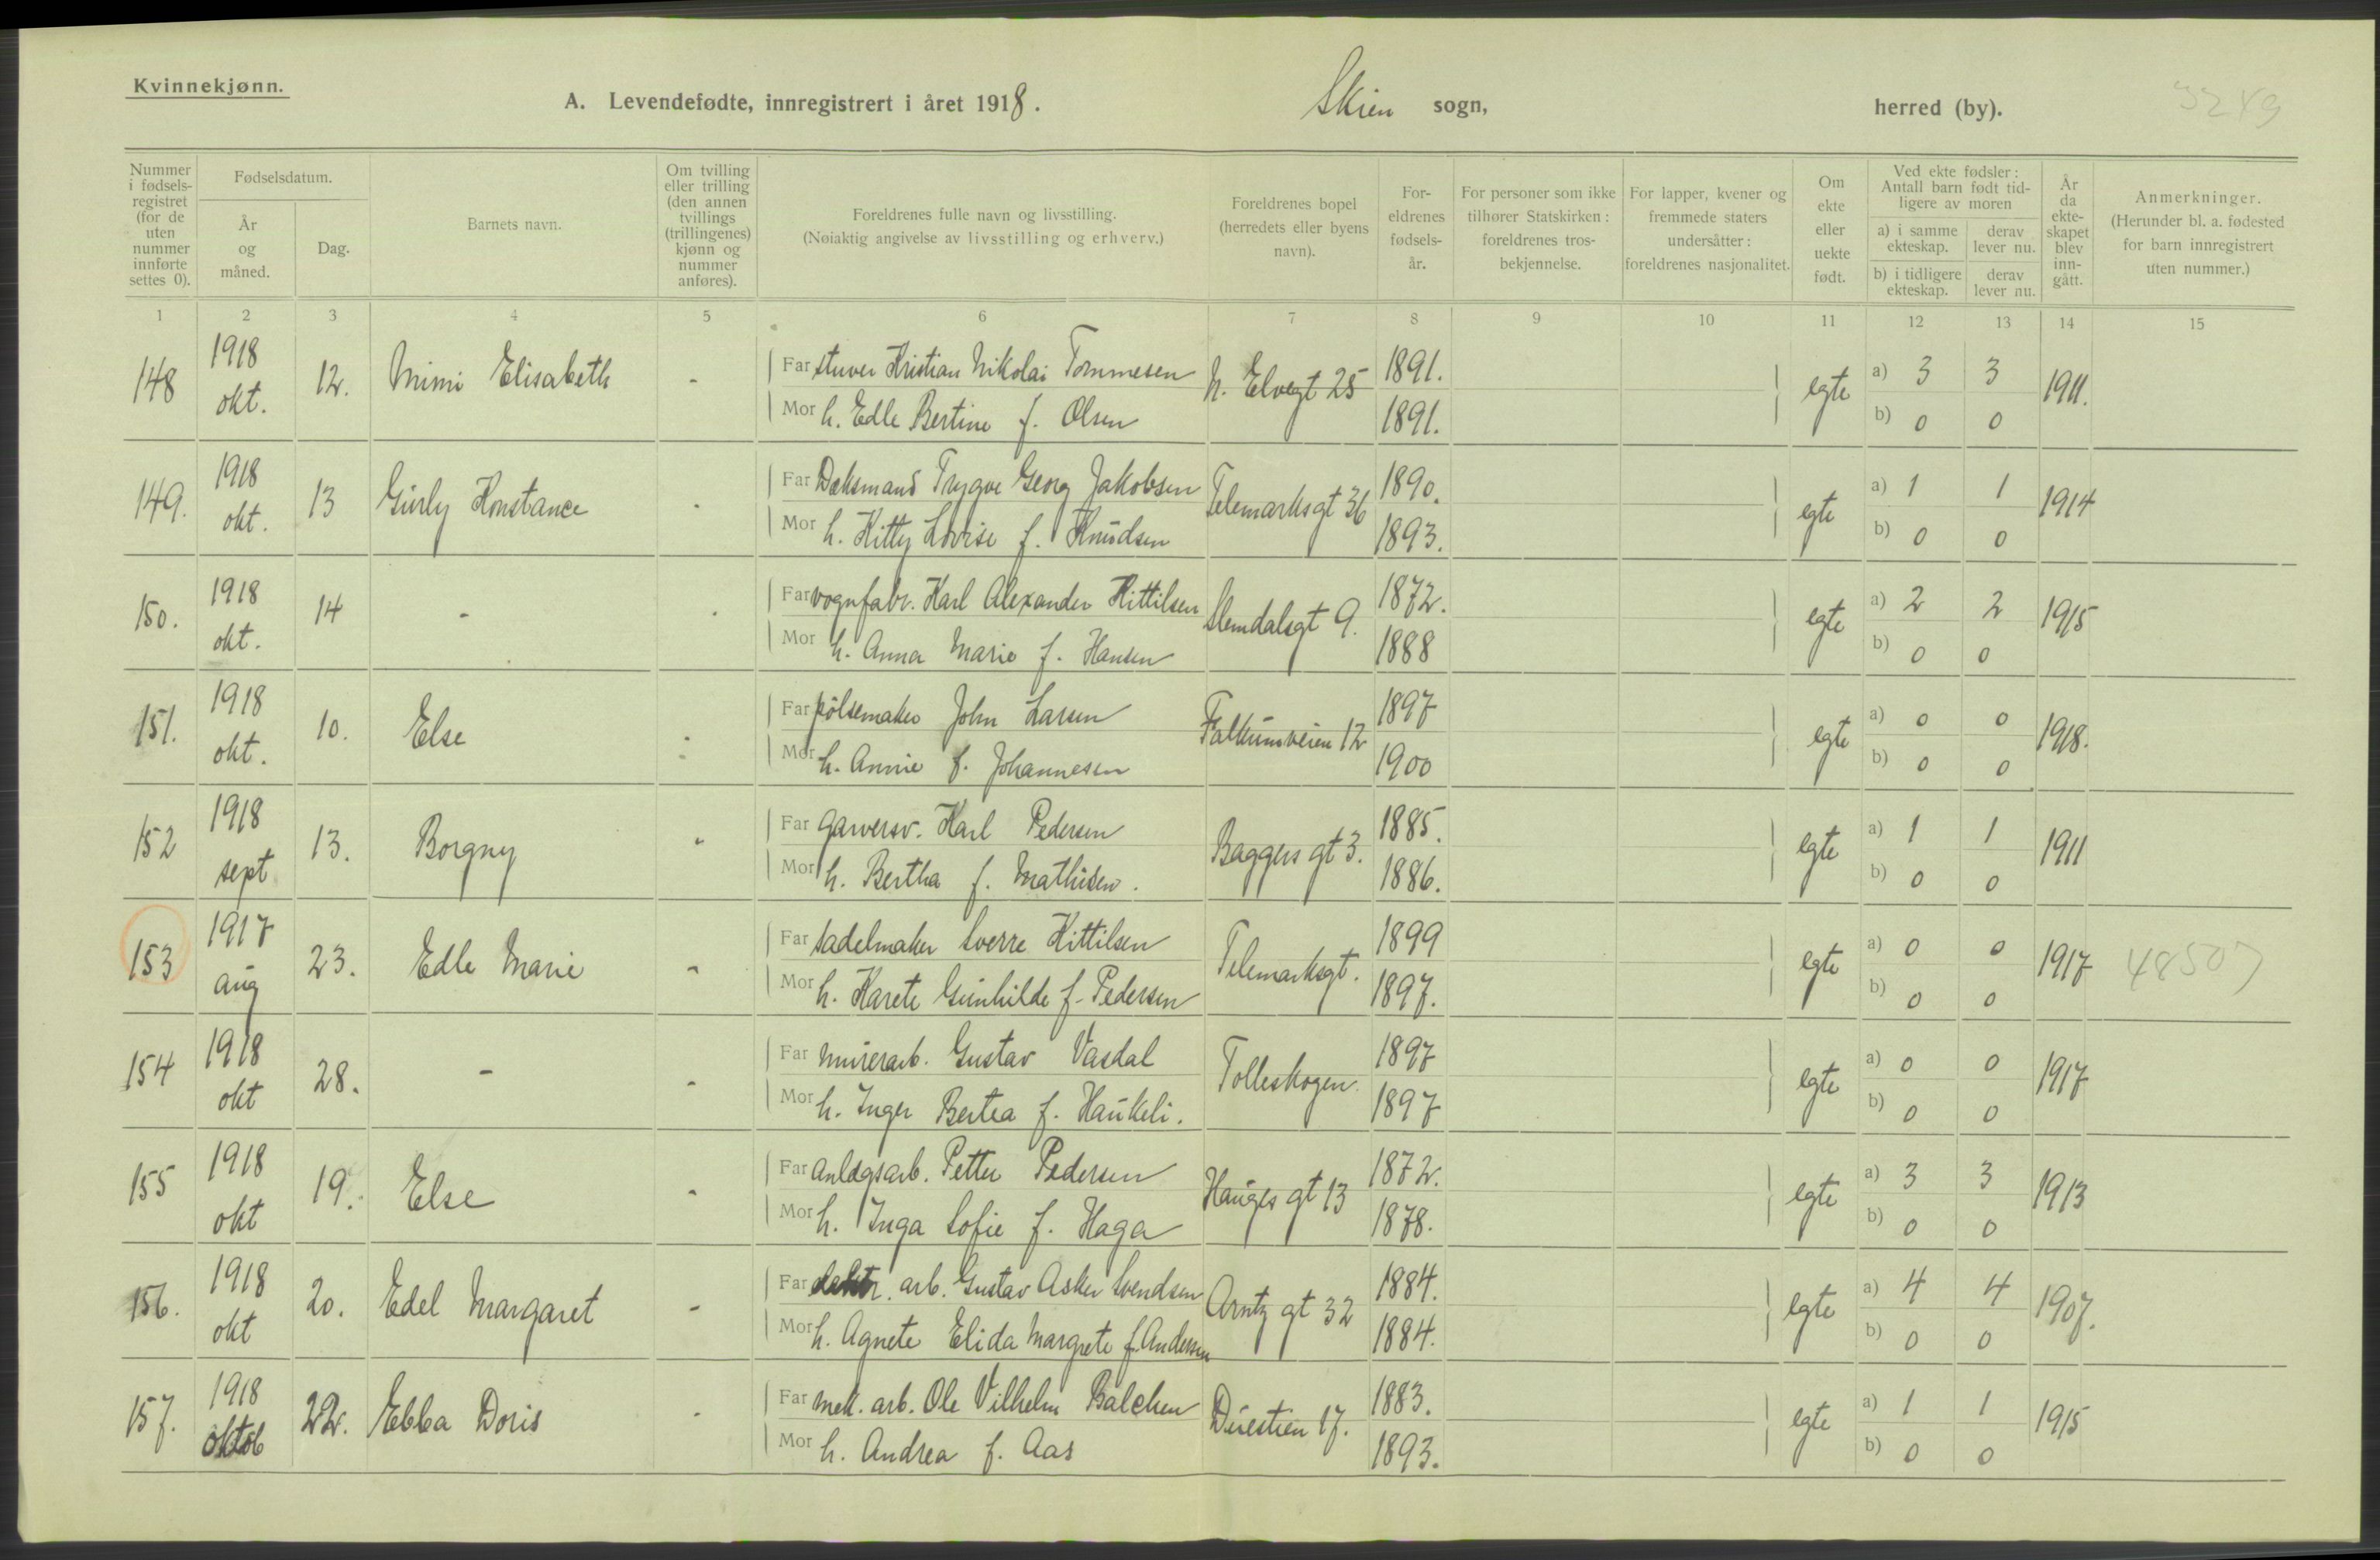 Kvinnekjønn.
A. Levendefødte, innregistrert i året 1918.
Skien sogn,
herred (by).
3249
Nummer i fødsels-registret (for de uten nummer innførte settes 0).
Fødselsdatum.
År og måned.
Dag.
Barnets navn.
Om tvilling eller trilling (den annen tvillings (trillingenes) kjønn og nummer anføres).
Foreldrenes fulle navn og livsstilling.
(Nøiaktig angivelse av livsstilling og erhverv.)
Foreldrenes bopel (herredets eller byens navn).
For-eldrenes fødsels-år.
For personer som ikke tilhører Statskirken: foreldrenes tros-bekjennelse.
For lapper, kvener og fremmede staters undersåtter: foreldrenes nasjonalitet.
Om ekte eller uekte født.
Ved ekte fødsler: Antall barn født tid-ligere av moren
a) i samme ekteskap.
derav lever nu.
b) i tidligere ekteskap.
derav lever nu.
År da ekte-skapet blev inn-gått.
Anmerkninger.
(Herunder bl. a. fødested for barn innregistrert uten nummer.)
1 2 3 4 5 6 7 8 9 10 11 12 13 14 15
148 1918 okt. 12. Mimi Elisabeth -
Far stuver Kristian Nikolai Tommesen N. Elvegt 25 1891. egte a) 3 3 1911.
Mor h. Edle Bertine f. Olsen 1891. b) 0 0
149. 1918 okt. 13 Gurly Konstance -
Far Dæksmand Trygve Georg Jakobsen Telemarksgt 36 1890. egte a) 1 1 1914
Mor h. Kitty Lovise f. Knudsen 1893. b) 0 0
150. 1918 okt. 14 - -
Far vognfabr. Karl Alexander Kittilsen Slemdalsgt 9. 1872. egte a) 2 2 1915
Mor h. Anna Marie f. Hansen 1888 b) 0 0
151. 1918 okt. 10. Else -
Far pölsemaker John Larsen Falkumveien 12 1897 egte a) 0 0 1918.
Mor h. Annie f. Johannesen 1900 b) 0 0
152 1918 sept 13. Borgny -
Far garversv. Karl Pedersen Baggers gt 3. 1885. egte a) 1 1 1911
Mor h. Bertha f. Mathisen. 1886. b) 0 0
153 1917 aug 23. Edle Marie -
Far sadelmaker Sverre Kittilsen Telemarksgt. 1899 egte a) 0 0 1917 48507
Mor h. Karete Gunhilde f. Pedersen 1897. b) 0 0
154 1918 okt 28. - -
Far murerarb. Gustav Vasdal Tolleskogen. 1897 egte a) 0 0 1917
Mor h. Inger Bertea f. Haukeli. 1897 b) 0 0
155 1918 okt 19. Else -
Far anlægsarb. Petter Pedersen Hauges gt 13 1872. egte a) 3 3 1913
Mor h. Inga Sofie f. Haga 1878. b) 0 0
156. 1918 okt 20. Edel Margaret -
Far arb. Gustav Asker Svendsen Arntz gt 32 1884. egte a) 4 4 1907.
Mor h. Agnete Elida Margrete f. Andersen 1884. b) 0 0
157. 1918 oktob 22. Ebba Doris -
Far mek. arb. Ole Vilhelm Balchen Duestien 17. 1883. egte a) 1 1 1915
Mor h. Andrea f. Aas 1893. b) 0 0